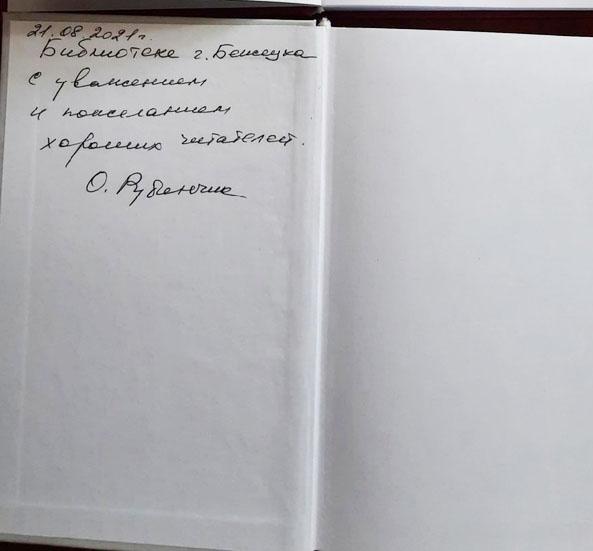 21.08.2021г.
Библиотеке г. Бежецка
с уважением
и пожеланием
хороших читателей.
О. Рубинчик